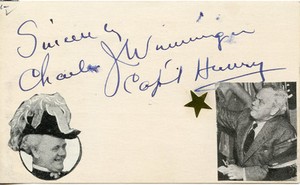 Sincerely
Charles J Winninger
Cap't Henry